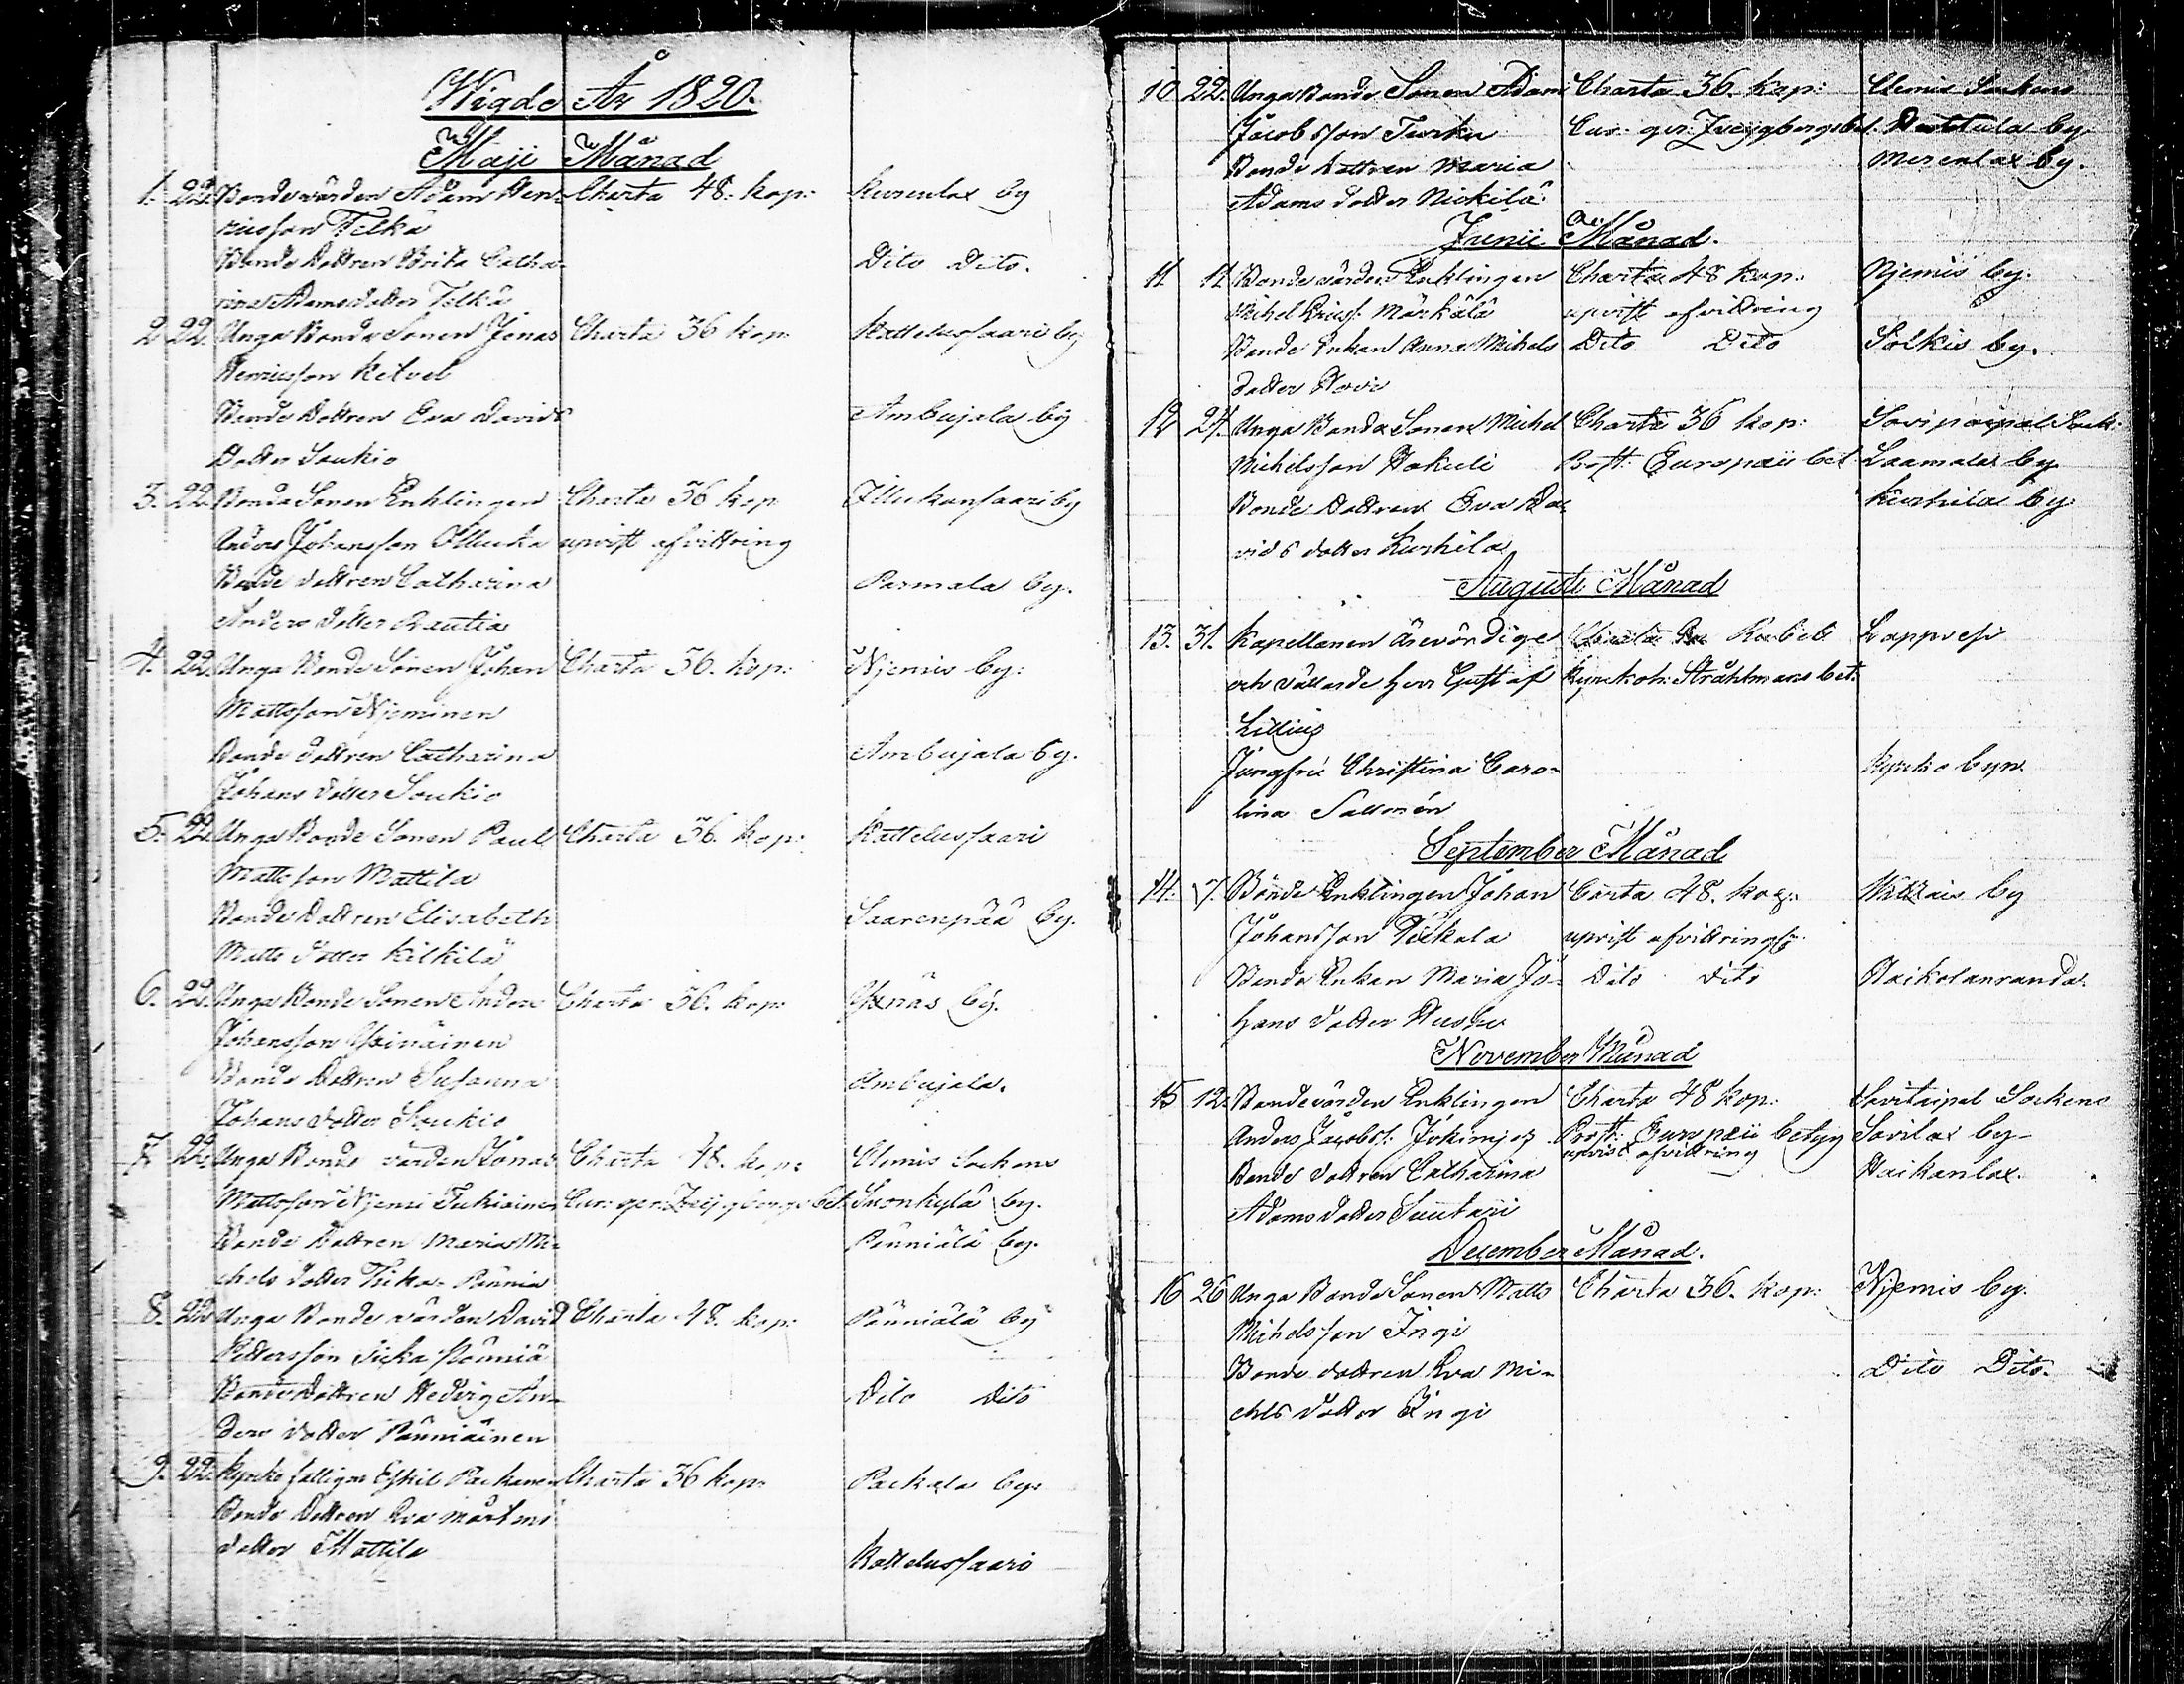 Wigde År 1820.
Maji Månad
1. 22. Bondevärden Adam Hen- Charta 48. kop: Kurenlax by
ricsson Telkä
Bonde Dottren Brita Catha- Dito Dito.
rina Adams dotter Telkä
2. 22. Unga Bonde Sonen Jonas Charta 36 kop: Kattelussaari by
Henricsson Ketvel
Bonde Dottren Eva Davids Ambujala by
Dotter Soukio
3. 22. Bonde Sonen Enklingen Charta 36 kop Illukansaari by
Anders Johansson Illucka upvist afvittring
Bonde dottren Catharina Parmala by.
Anders dotter Rautia
4. 22. Unga Bonde Sonen Johan Charta 36. kop: Njemis by:
Mattsson Njeminen
Bonde dottren Catharina Ambujala by.
Johans dotter Soukio
5. 22. Unga Bonde Sonen Paul Charta 36. kop: Kattelussaari
Mattsson Mattila
Bonde Dottren Elisabeth Saarenpää by.
Matts dotter Kilkilä
6. 22. Unga Bonde Sonen Anders Charta 36. kop:
Johansson
Bonde Dottren Susanna Ambujala.
Johans dotter Soukio
7. 22. Unga Bonde värden Jonas Charta 48. kop: Clemis Sockens
Mattsson Njemi Tukiainen Cur: ger: bet: Suonkylä by.
Bonde Dottren Maria Mi- Pönniälä by.
chels dotter Pönniä
8. 22. Unga Bonde värden David Charta 48. kop: Pönniälä by
Pettersson Sicka Pönniä
Bonde Dottren Hedvig An- Dito Dito
ders dotter Pönniäinen
9. 22. Kyrko Eskil Packanen Charta 36 kop: Packala by:
Bonde Dottren Eva Mårtens
dotter Mattila Kattelussaari
10 22. Unga Bonde Sonen Adam Charta 36. kop: Clemis Sockens
Jacobsson Turku Cur: ger: bet. by
Bonde dottren Maria Merenlax by.
Adams dotter Nickilä.
Junii Månad.
11 11 Bonde värden Enklingen Charta 48 kop: Njemis by.
Michel Ericss. Märkälä upvist afvittring
Bonde Enkan Anna Michels Dito Dito Solkis by.
dotter Hovi
12 24. Unga Bonde Sonen Michel Charta 36 kop: Savitaipal Sock:
Michelsson Hakuli Prost: Europæi bet Laamala by
Bonde Dottren Eva Da- Kurhila by
vids dotter Kurhila
Augusti Månad
13. 31. Kapellanen ärevördige Charta Lappvesi
och vällärde Herr Gustaf Kyrkoh: Stråhlmans bet:
Lillius
Jungfru Christina Caro- Kyrko byn.
lina Salmén
September Månad
14. 7. Bonde Enklingen Johan Carta 48. kop: by
Johansson upvist afvittring
Bonde Enkan Maria Jo- Dito dito Haikolanranda.
hans dotter Husku
November Månad
15 12. Bondevärden Enklingen Charta 48 kop: Savitaipal Sockens
Anders Jacobss: Prost: Europæii betyg Savilax by
upvist afvittring
Bonde dottren Catharina Haikanlax.
Adams dotter Suutari
December Månad.
16 26 Unga Bonde Sonen Matts Charta 36. kop: Njemis by.
Michelsson Ingi
Bonde dottren Eva Mi- Dito Dito.
chels dotter Ingi